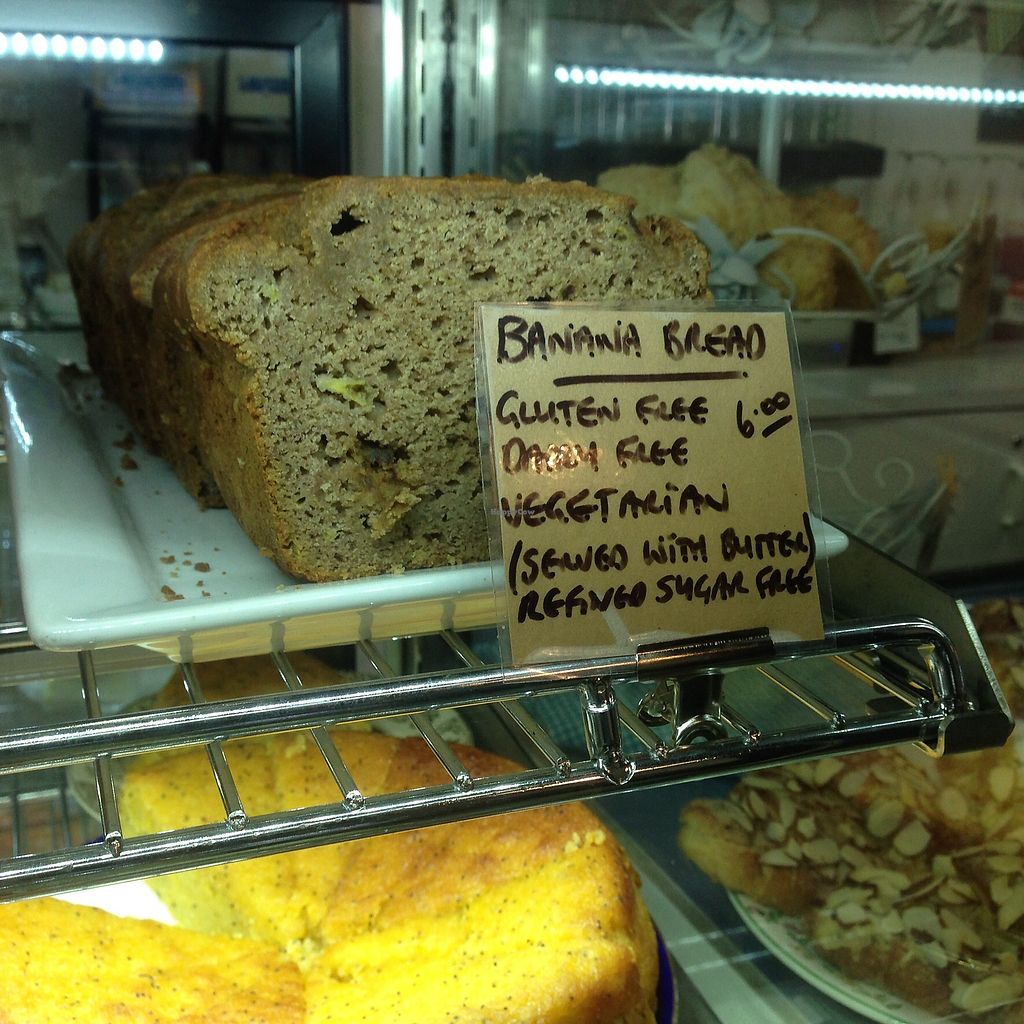 BANANA BREAD
GLUTEN FREE 6.00
DAIRY FREE
VEGETARIAN
(SERVED WITH BUTTER)
REFINED SUGAR FREE
HappyCow